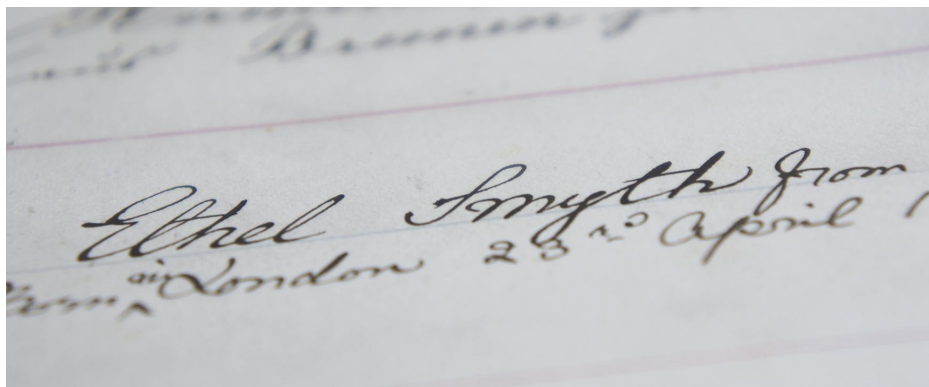 Ethel Smyth from
Born in London 23rd April 1